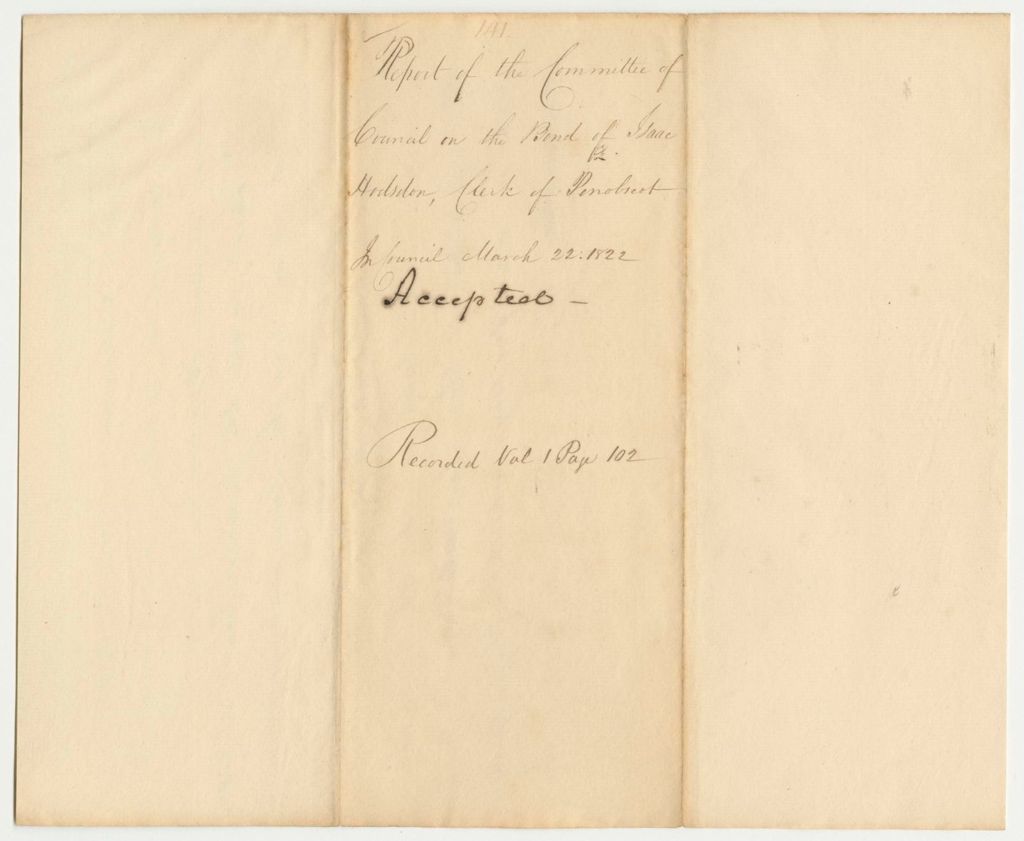 141.
Report of the Committee of
Council on the Bond of Isaac
Hodsdon, Clerk of Penobscot
In Council March 22. 1822
Accepted –
Recorded Vol 1 Page 102